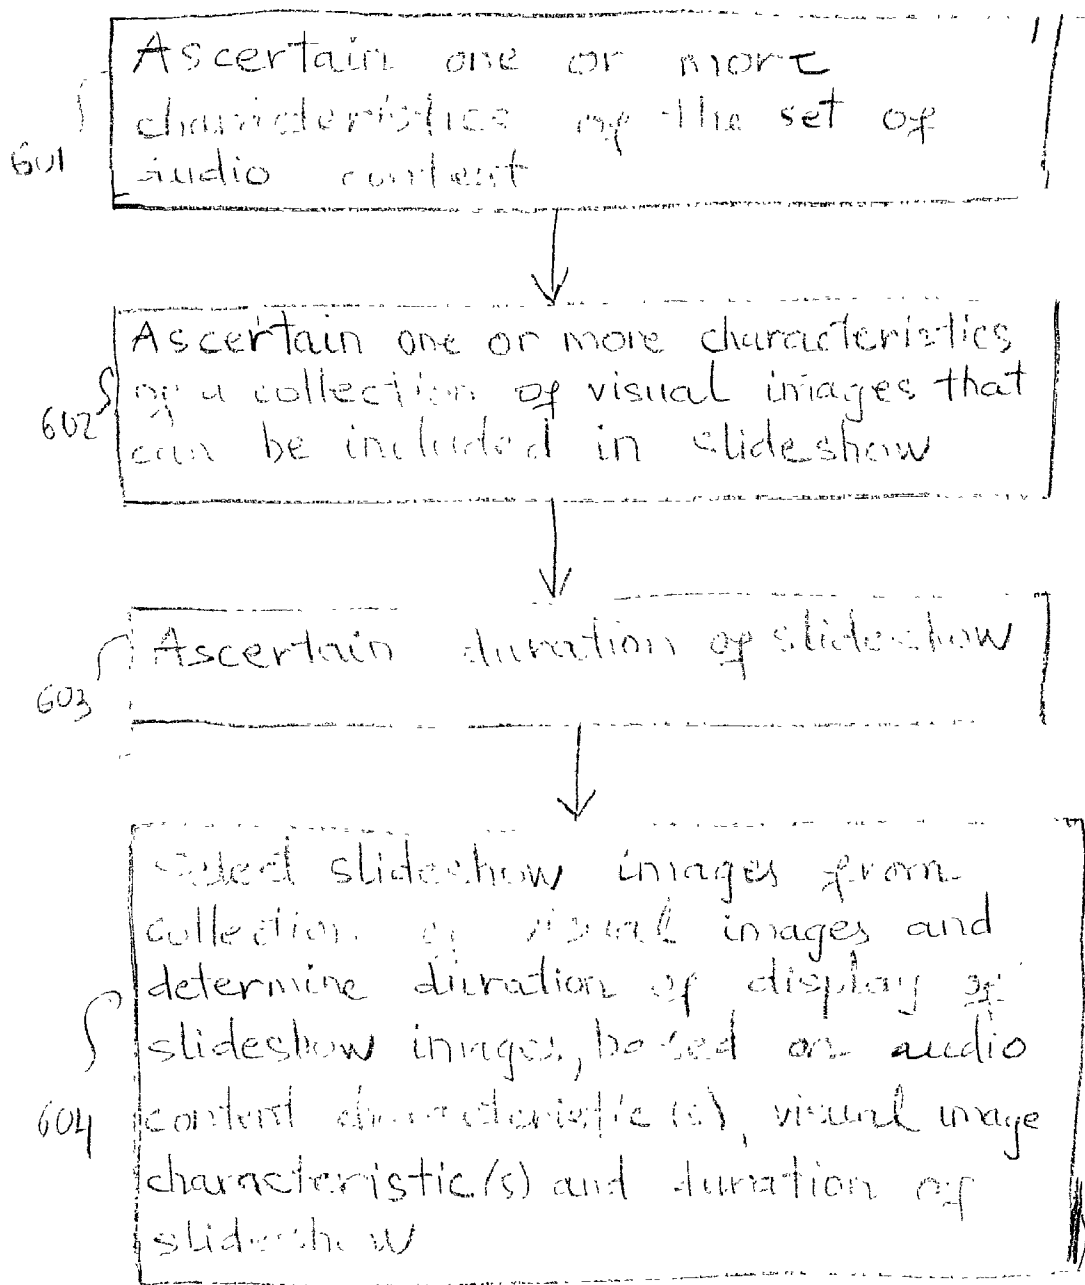 Ascertain one or more
characteristics of the set of
audio content
601
Ascertain one or more characteristics
of a collection of visual images that
can be included in slideshow
602
Ascertain duration of slideshow
603
Select slideshow images from
collection of visual images and
determine duration of display of
slideshow images, based on audio
content characteristic(s), visual image
characteristic(s) and duration of
slideshow
604